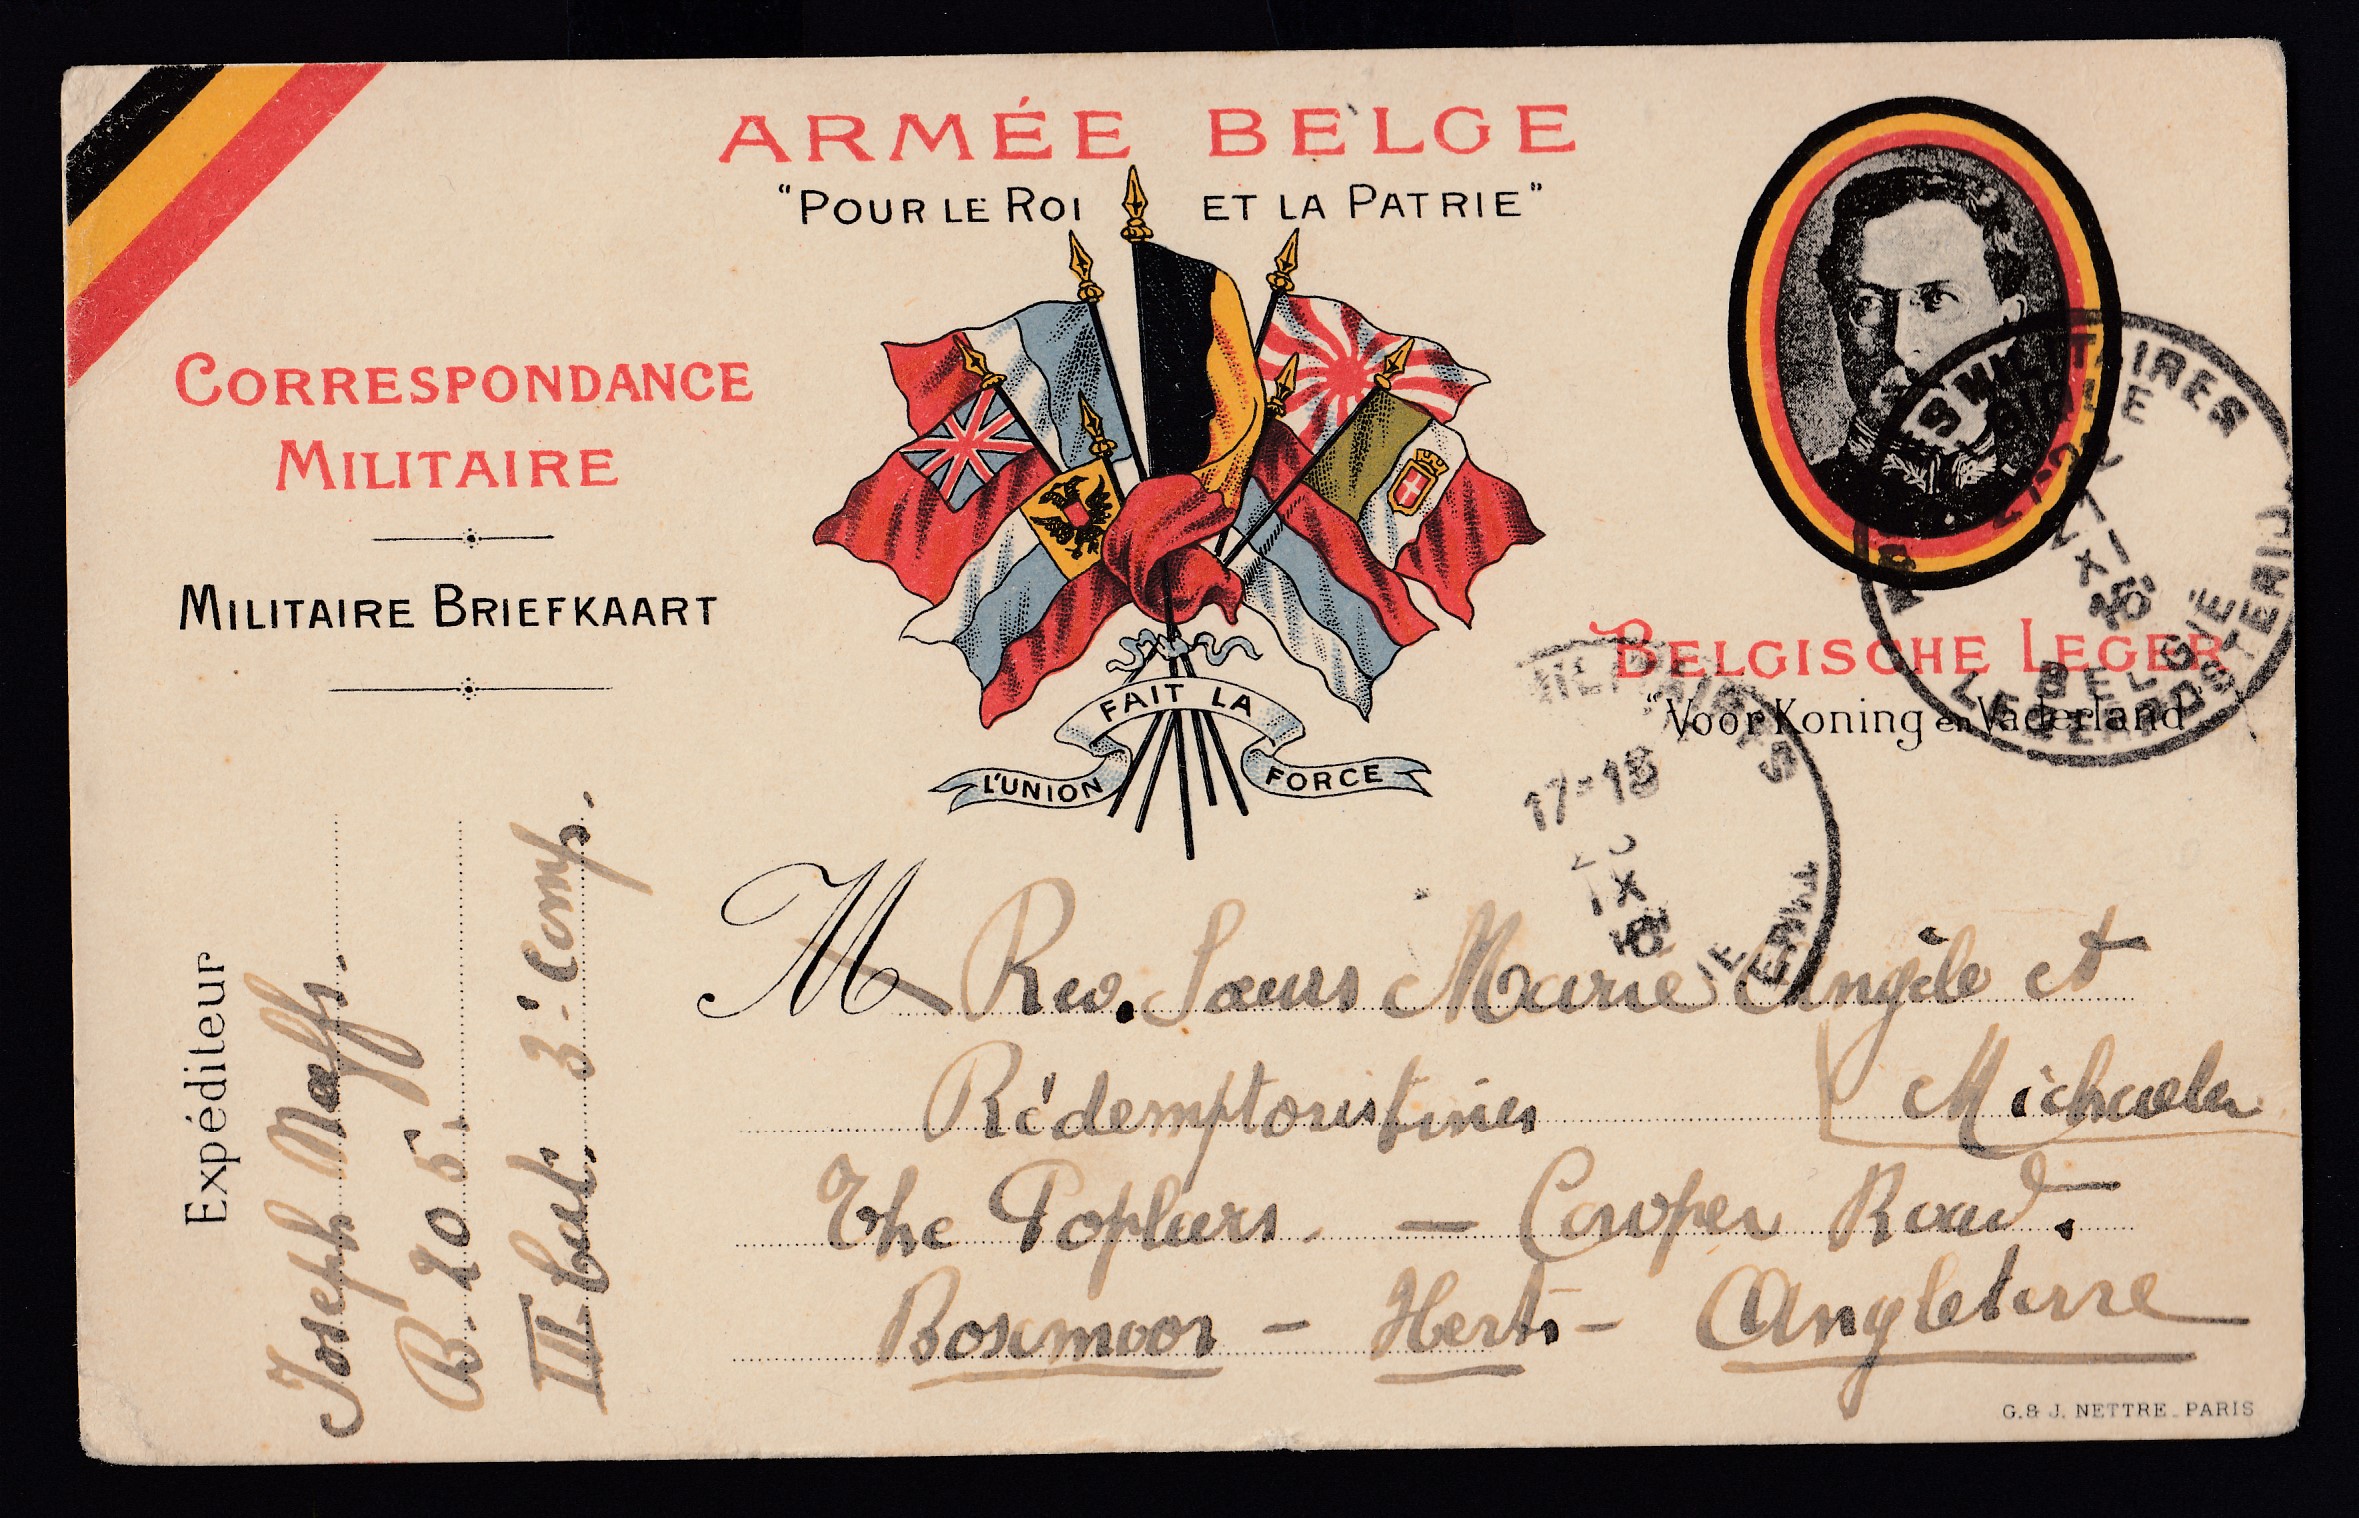 ARMÉE BELGE
"POUR LE ROI ET LA PATRIE"
CORRESPONDANCE
MILITAIRE
MILITAIRE BRIEFKAART
L'UNION FAIT LA FORCE
BELGISCHE LEGER
"Voor Koning en Vaderland"
MILITAIRES
BELGIE
LEGERPOSTERIJ
BELGIE
XI
17-18
IX
Expéditeur
Joseph
B. 205.
III bat. 3e Comp.
M Rev. Sœurs Marie Angèle et
Rédemptoristines Michaela
The Poplars. - Cowper Road.
Boxmoor - Herts - Angleterre
G. & J. NETTRE_PARIS